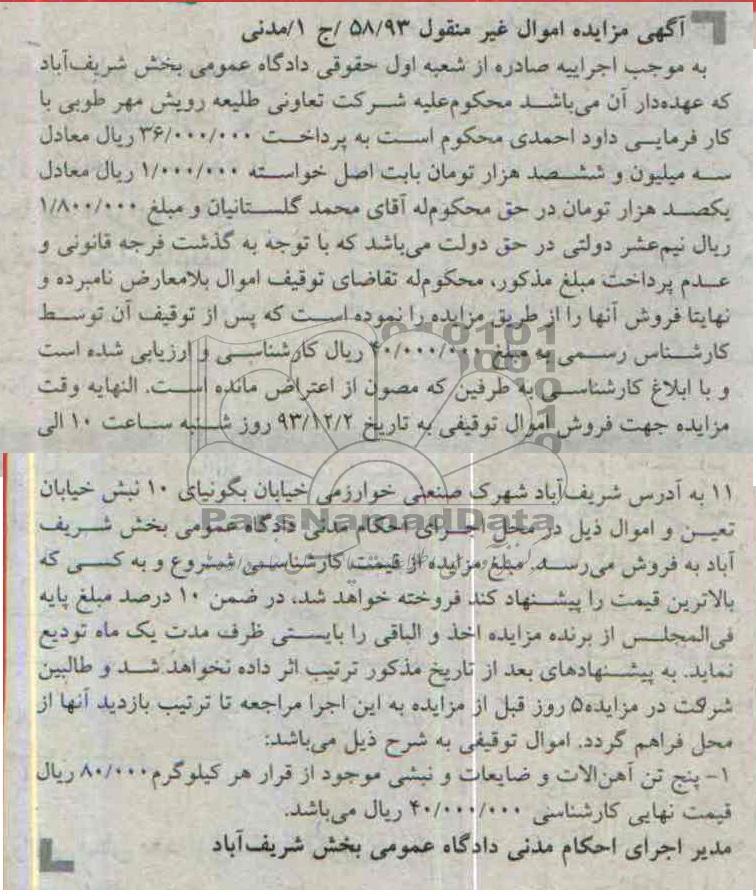 آگهی مزایده اموال غیر منقول ۵۸/۹۳ /ج ۱/مدنی
به موجب اجراییه صادره از شعبه اول حقوقی دادگاه عمومی بخش شریف‌آباد
که عهده‌دار آن می‌باشد محکوم‌علیه شرکت تعاونی طلیعه رویش مهر طوبی با
کار فرمایی داود احمدی محکوم است به پرداخت ۳۶/۰۰۰/۰۰۰ ریال معادل
سه میلیون و ششصد هزار تومان بابت اصل خواسته ۱/۰۰۰/۰۰۰ ریال معادل
یکصد هزار تومان در حق محکوم‌له آقای محمد گلستانیان و مبلغ ۱/۸۰۰/۰۰۰
ریال نیم‌عشر دولتی در حق دولت می‌باشد که با توجه به گذشت فرجه قانونی و
عدم پرداخت مبلغ مذکور، محکوم‌له تقاضای توقیف اموال بلامعارض نامبرده و
نهایتا فروش آنها را از طریق مزایده را نموده است که پس از توقیف آن توسط
کارشناس رسمی به مبلغ ۴۰/۰۰۰/۰۰۰ ریال کارشناسی و ارزیابی شده است
و با ابلاغ کارشناسی به طرفین که مصون از اعتراض مانده است. النهایه وقت
مزایده جهت فروش اموال توقیفی به تاریخ ۹۳/۱۲/۲ روز شنبه ساعت ۱۰ الی
۱۱ به آدرس شریف‌آباد شهرک صنعتی خوارزمی خیابان بگونیای ۱۰ نبش خیابان
تعیین و اموال ذیل در محل اجرای احکام مدنی دادگاه عمومی بخش شریف
ParsNamadData
آباد به فروش می‌رسد. مبلغ مزایده از قیمت کارشناسی شروع و به کسی که
بالاترین قیمت را پیشنهاد کند فروخته خواهد شد، در ضمن ۱۰ درصد مبلغ پایه
فی‌المجلس از برنده مزایده اخذ و الباقی را بایستی ظرف مدت یک ماه تودیع
نماید. به پیشنهادهای بعد از تاریخ مذکور ترتیب اثر داده نخواهد شد و طالبین
شرکت در مزایده۵ روز قبل از مزایده به این اجرا مراجعه تا ترتیب بازدید آنها از
محل فراهم گردد. اموال توقیفی به شرح ذیل می‌باشد:
۱- پنج تن آهن‌آلات و ضایعات و نبشی موجود از قرار هر کیلوگرم۸۰/۰۰۰ ریال
قیمت نهایی کارشناسی ۴۰/۰۰۰/۰۰۰ ریال می‌باشد.
مدیر اجرای احکام مدنی دادگاه عمومی بخش شریف‌آباد